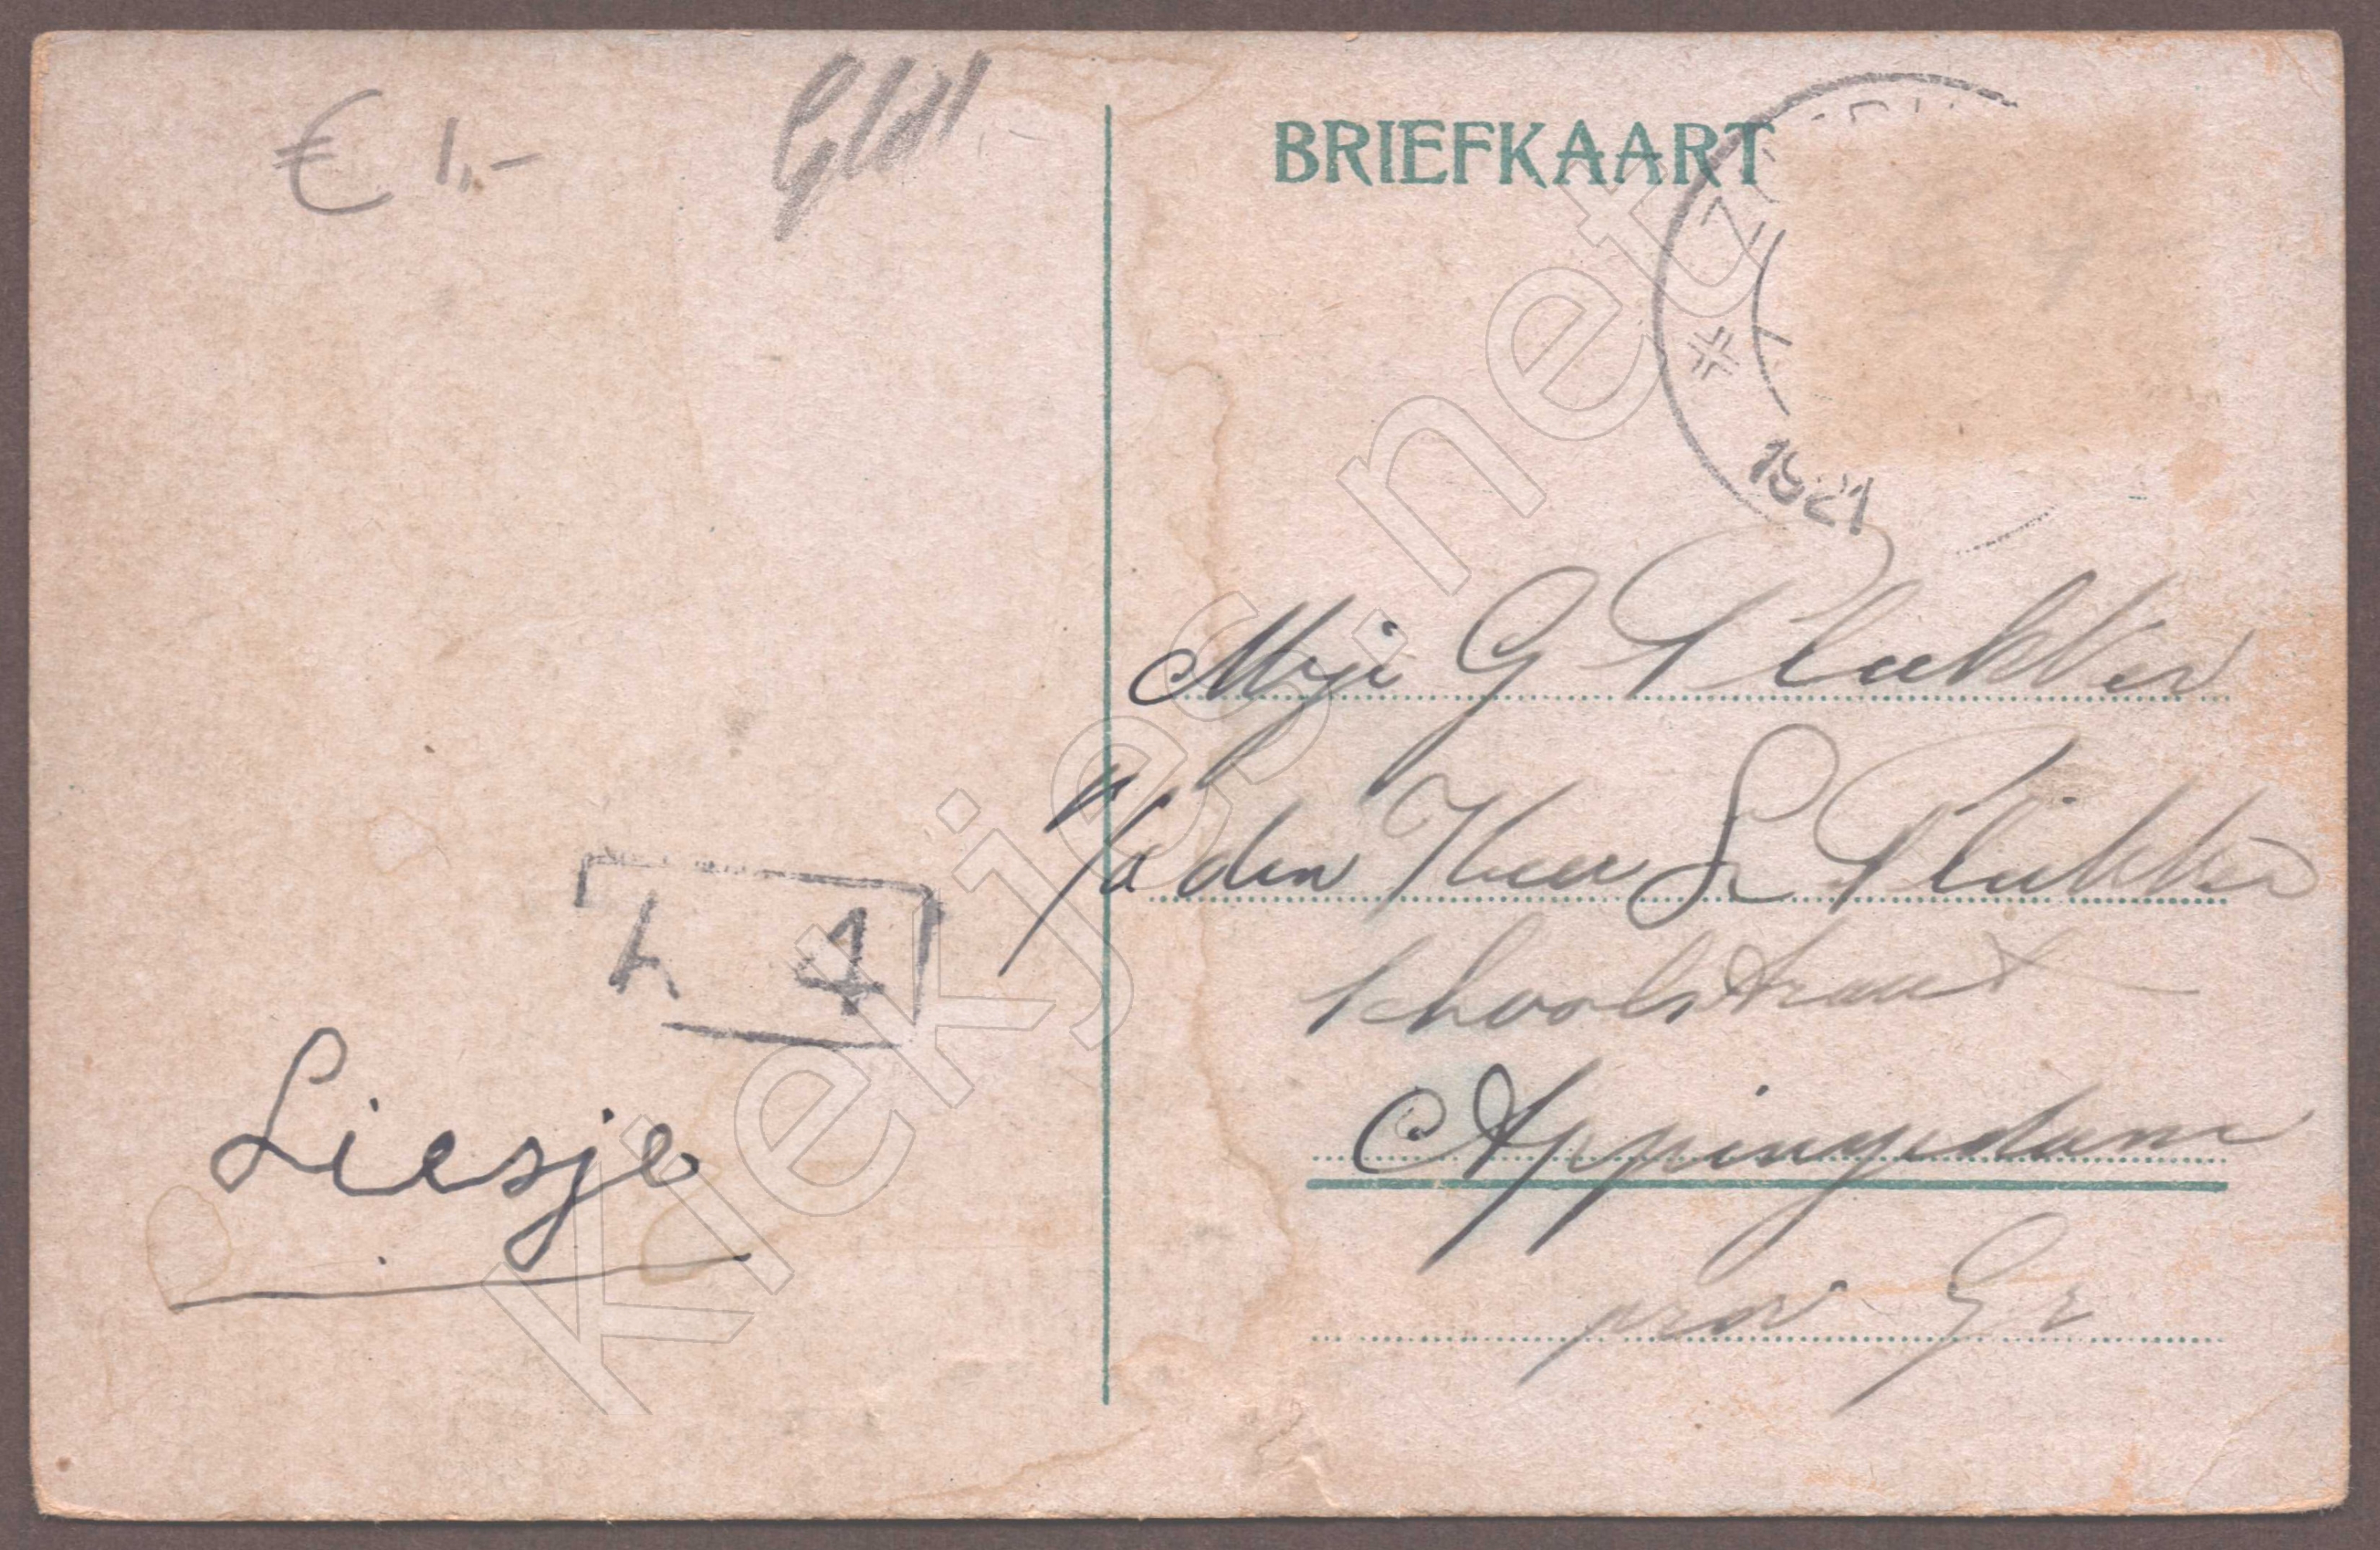 € 1,-
BRIEFKAART
1921
Mej G Plukker
p/a den Heer L Plukker
Schoolstraat
Appingedam
prov Gr
4
Liesje
Kiekjes.net